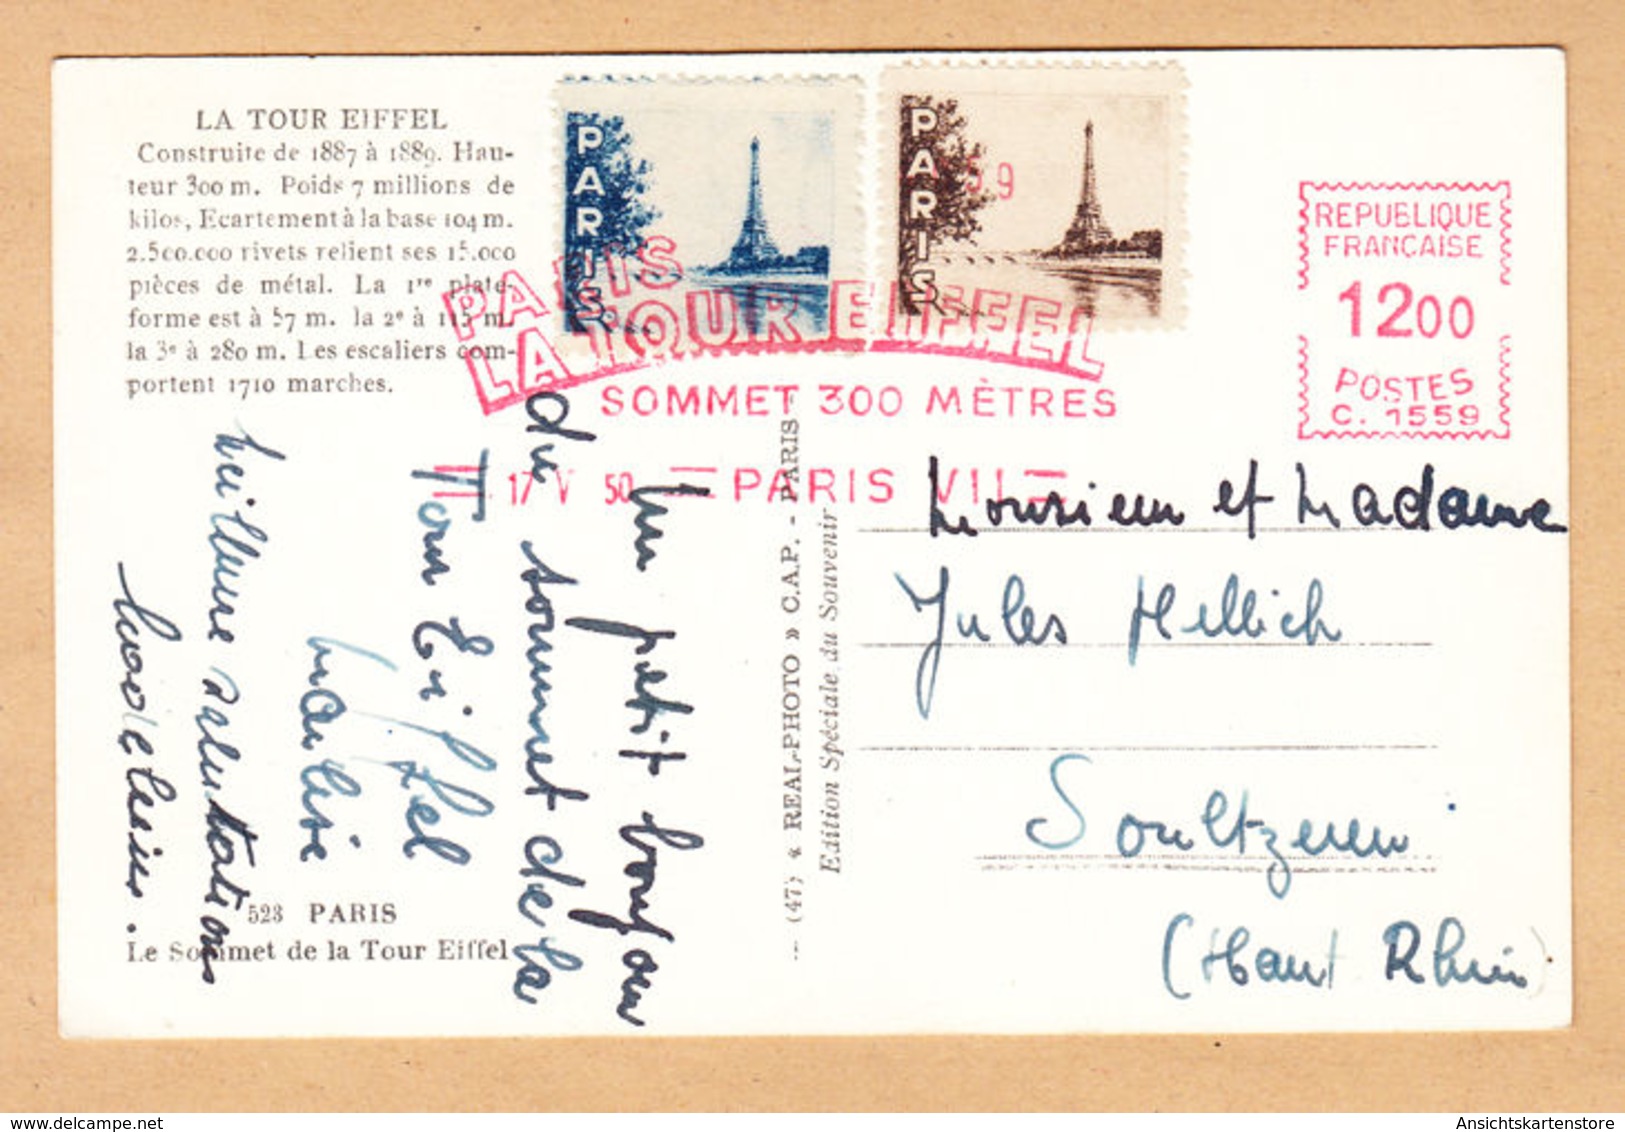 LA TOUR EIFFEL
Construite de 1887 à 1889. Hau-
teur 300 m. Poids 7 millions de
kilos, Ecartement à la base 104 m.
2.500.000 rivets relient ses 15.000
pièces de métal. La 1re plate-
forme est à 57 m. la 2e à 115 m.
la 3e à 280 m. Les escaliers com-
portent 1710 marches.
PARIS
PARIS
59
REPUBLIQUE
FRANÇAISE
1200
POSTES
C. 1559
PARIS
LA TOUR EIFFEL
SOMMET 300 MÈTRES
17 V 50 PARIS VII
Un petit bonjour
du sommet de la
Tour Eiffel
Marlise
Meilleures salutations
523 PARIS
Le Sommet de la Tour Eiffel
(47) « REAL-PHOTO » C.A.P. - PARIS
Edition Spéciale du Souvenir
Monsieur et Madame
Jules Hellich
Soultzeren
(Haut Rhin)
Ansichtskartenstore